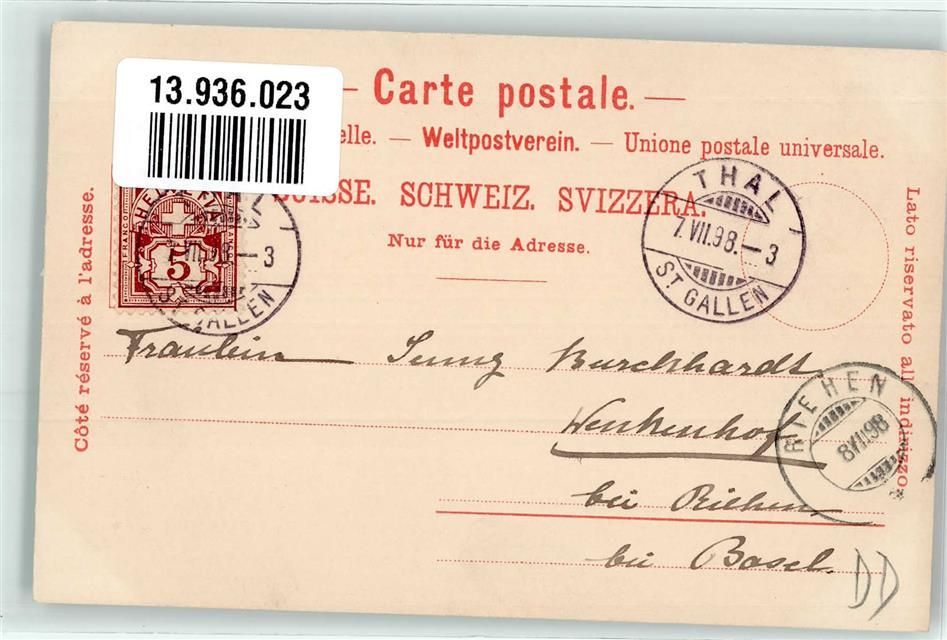 13.936.023
Carte postale.
elle. — Weltpostverein. — Unione postale universale.
SUISSE. SCHWEIZ. SVIZZERA.
Nur für die Adresse.
Côté réservé à l'adresse.
Lato riservato all indirizzo.
FRANCO
5
7.VII.98.—3
ST GALLEN
THAL
7.VII.98.—3
ST GALLEN
Fräulein Burckhardt
Wenkenhof
bei Riehen
bei Basel.
RIEHEN
8.VII.98
DD